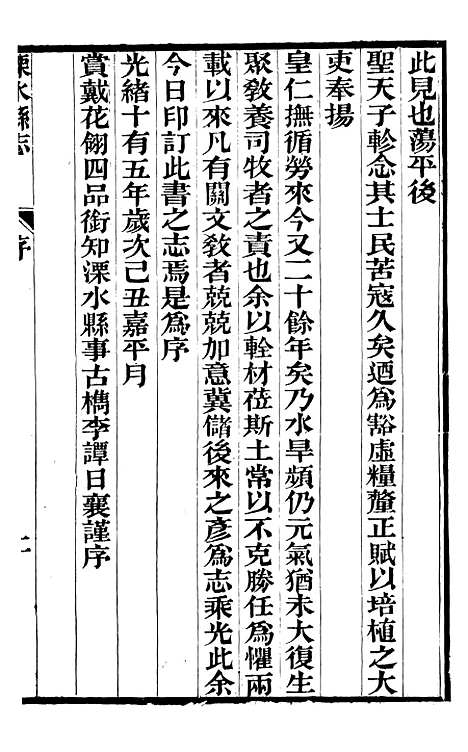 此見也蕩平後
聖天子軫念其士民苦寇久矣迺為豁虛糧釐正賦以培植之大
吏奉揚
皇仁撫循勞來今又二十餘年矣乃水旱頻仍元氣猶未大復生
聚教養司牧者之責也余以輇材莅斯土常以不克勝任為懼兩
載以來凡有關文教者兢兢加意冀儲後來之彥為志乘光此余
今日印訂此書之志焉是為序
光緒十有五年歲次己丑嘉平月
賞戴花翎四品銜知溧水縣事古檇李譚日襄謹序
溧水縣志
序
二